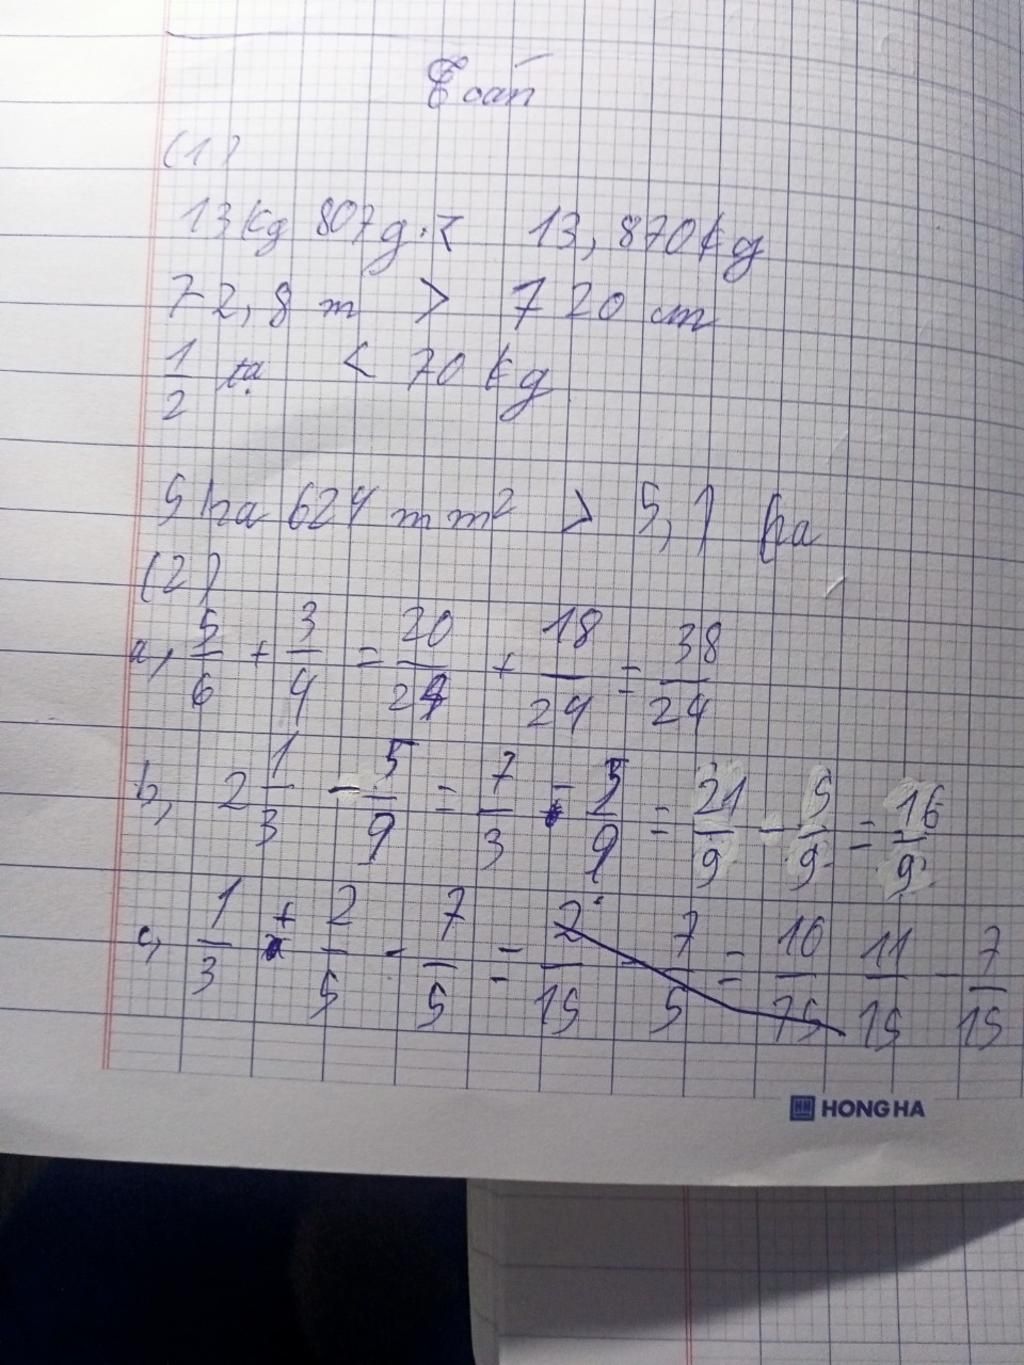 Toán
(1)
13kg 807g < 13,870kg
72,8 m > 720 cm
1/2 tạ < 70 kg
5 ha 624 mm² > 5,1 ha
(2)
a, 5/6 + 3/4 = 20/24 + 18/24 = 38/24
b, 2 1/3 - 5/9 = 7/3 - 5/9 = 21/9 - 5/9 = 16/9
c, 1/3 + 2/5 - 7/5 = 2/15 - 7/5 = 10/75 11/15 - 7/15
HONG HA